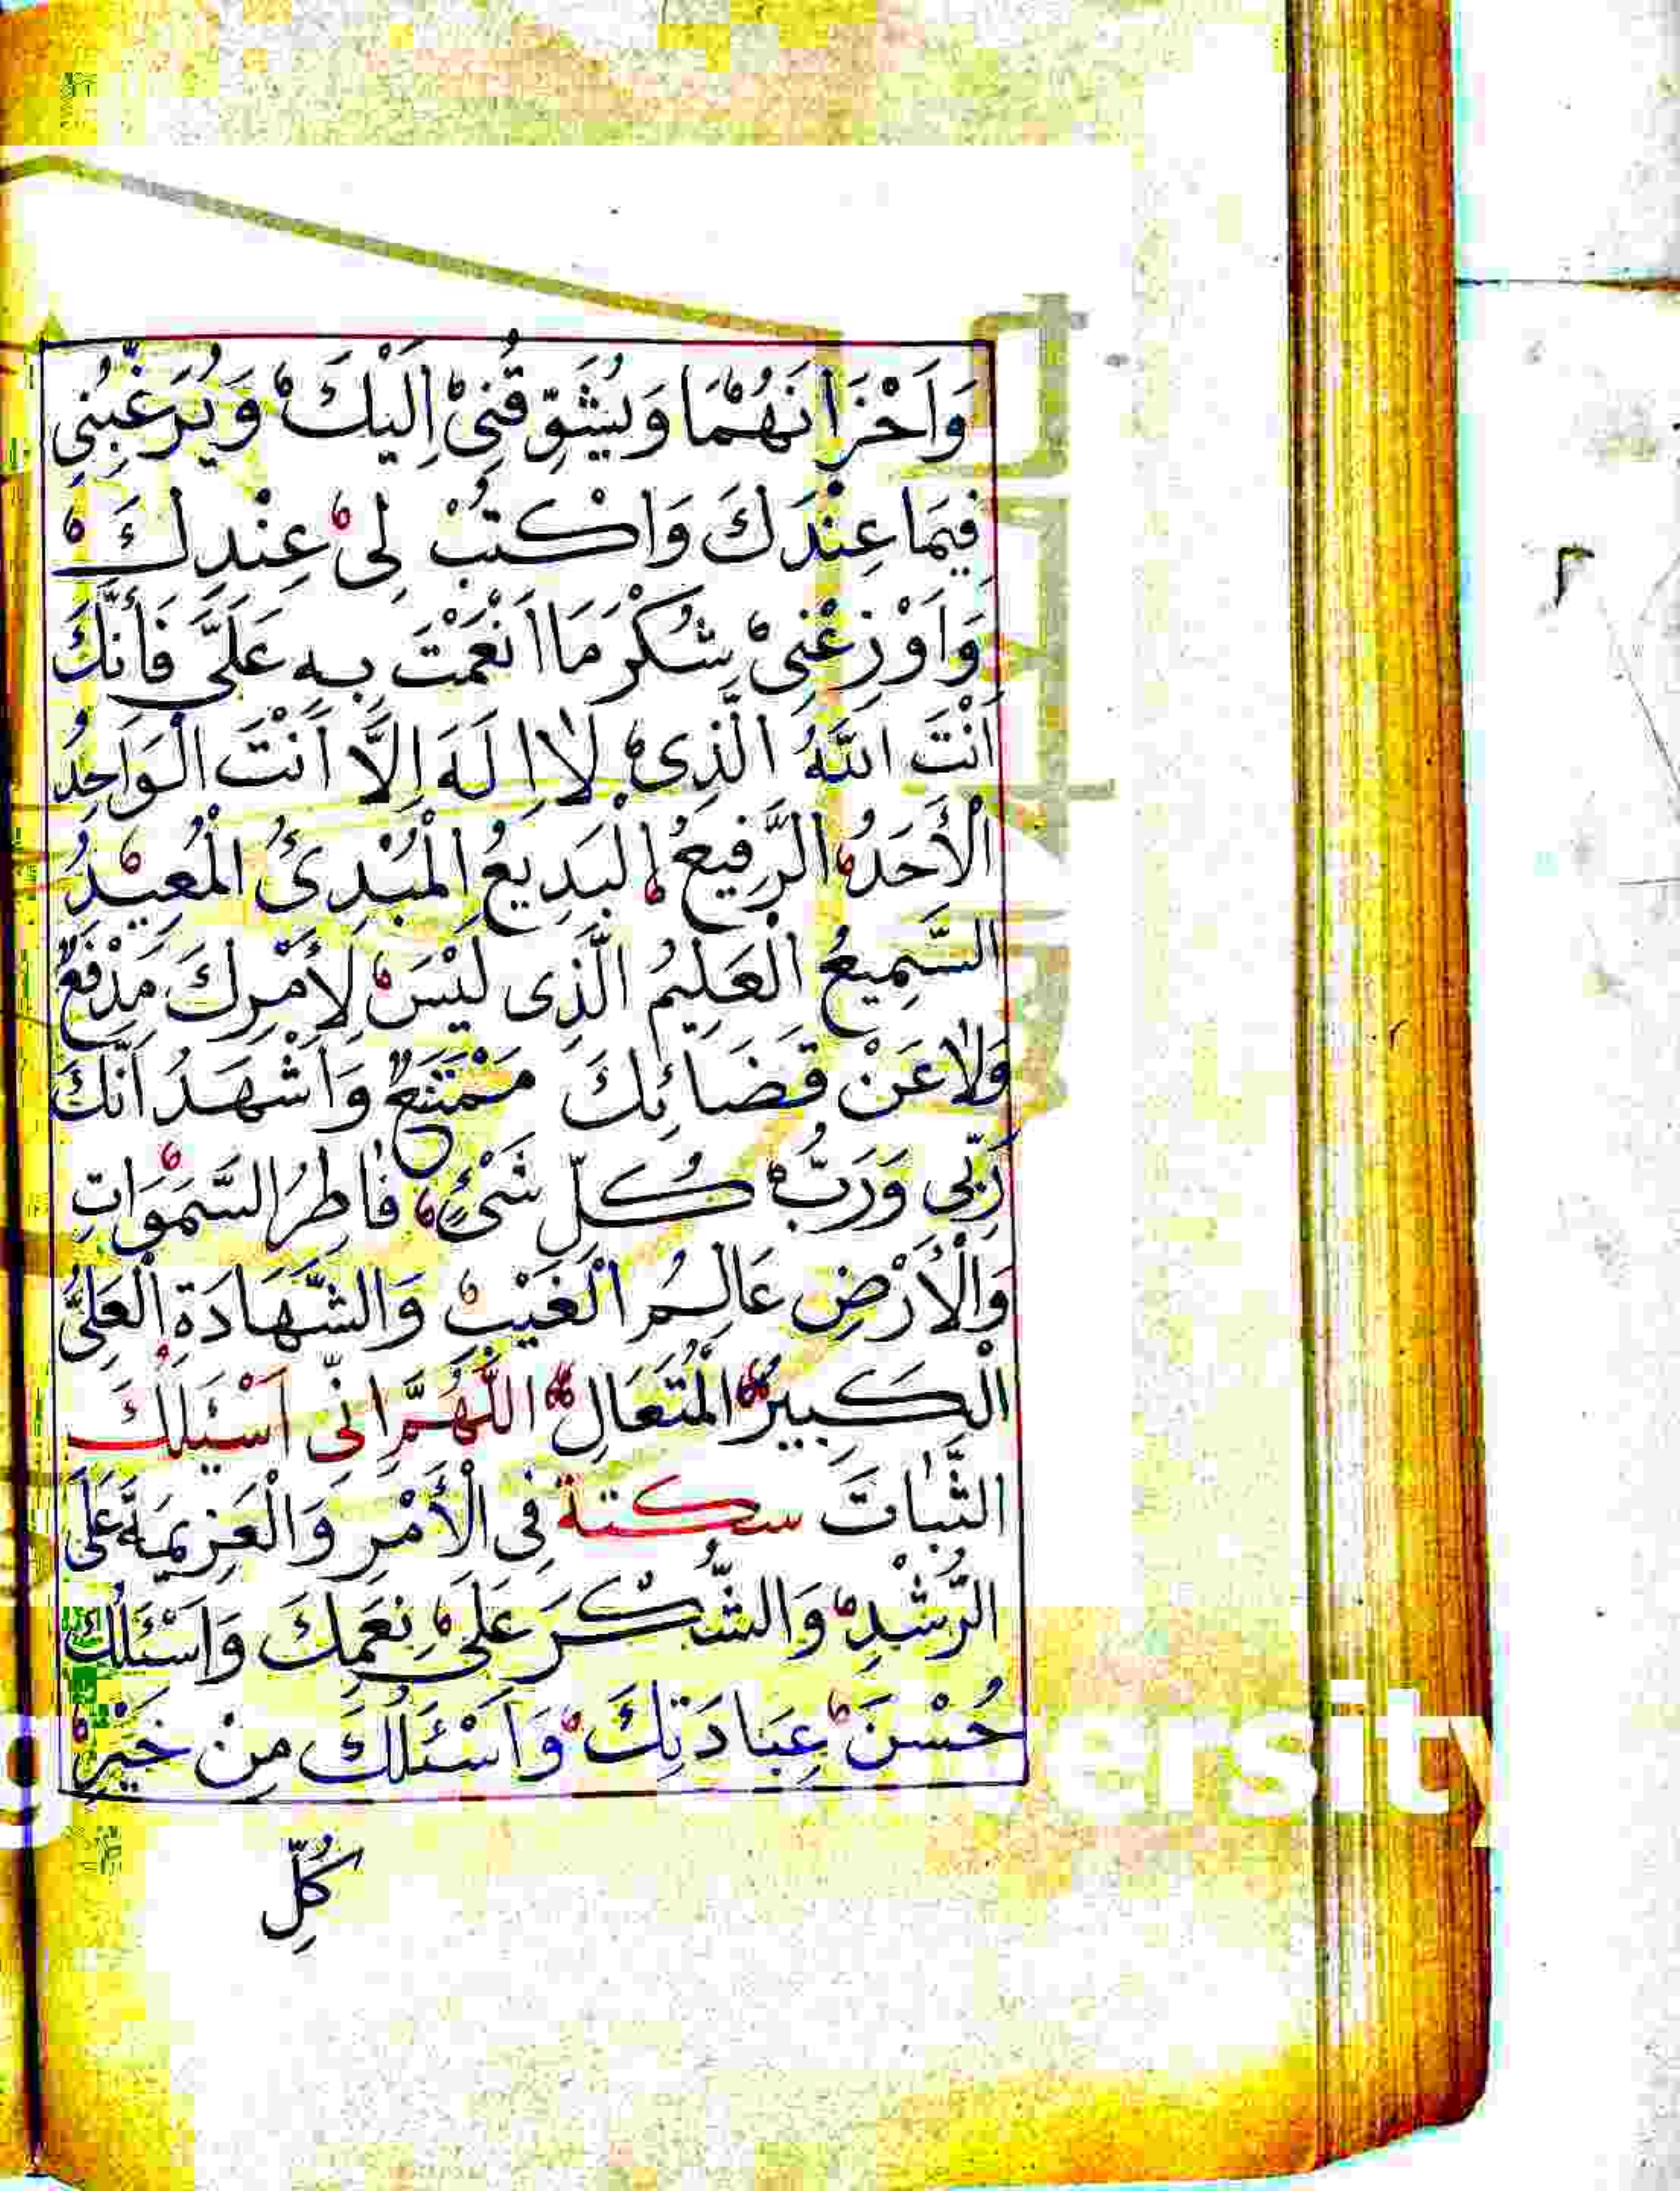 وَاَحْزَانَهُمَا وَيُشَوِّقُنِىْ اِلَيْكَ وَيُرَغِّبُنِى
فِيمَا عِنْدَكَ وَاكْتُبْ لِى عِنْدِكَ
وَاَوْزِعْنِىْ شُكْرَ مَا اَنْعَمْتَ بِهِ عَلَىَّ فَأَنَّكَ
اَنْتَ اللّٰهُ الَّذِى لَا اِلَهَ اِلَّا اَنْتَ الْوَاحِدُ
الْأَحَدُ الرَّفِيعُ الْبَدِيعُ الْمُبْدِئُ الْمُعِيْدُ
السَّمِيعُ الْعَلِيمُ الَّذِى لَيْسَ لِأَمْرِكَ مَدْفَعٌ
وَلَا عَنْ قَضَائِكَ مَمْتَنَعٌ وَاَشْهَدُ اَنَّكَ
رَبِّى وَرَبُّ كُلِّ شَىْءٍ فَاطِرُ السَّمَوَاتِ
وَالْأَرْضِ عَالِمُ الْغَيْبِ وَالشَّهَادَةِ الْعَلِىُّ
الْكَبِيرُ الْمُتَعَالِ اَللّٰهُمَّ اِنِّى اَسْئَلُكَ
الثَّبَاتَ سكتة فِى الْأَمْرِ وَالْعَزِيمَةَ عَلَى
الرُّشْدِ وَالشُّكْرَ عَلَى نِعَمِكَ وَاَسْئَلُكَ
حُسْنَ عِبَادَتِكَ وَاَسْئَلُكَ مِنْ خَيْرِ
كُلِّ
ersity